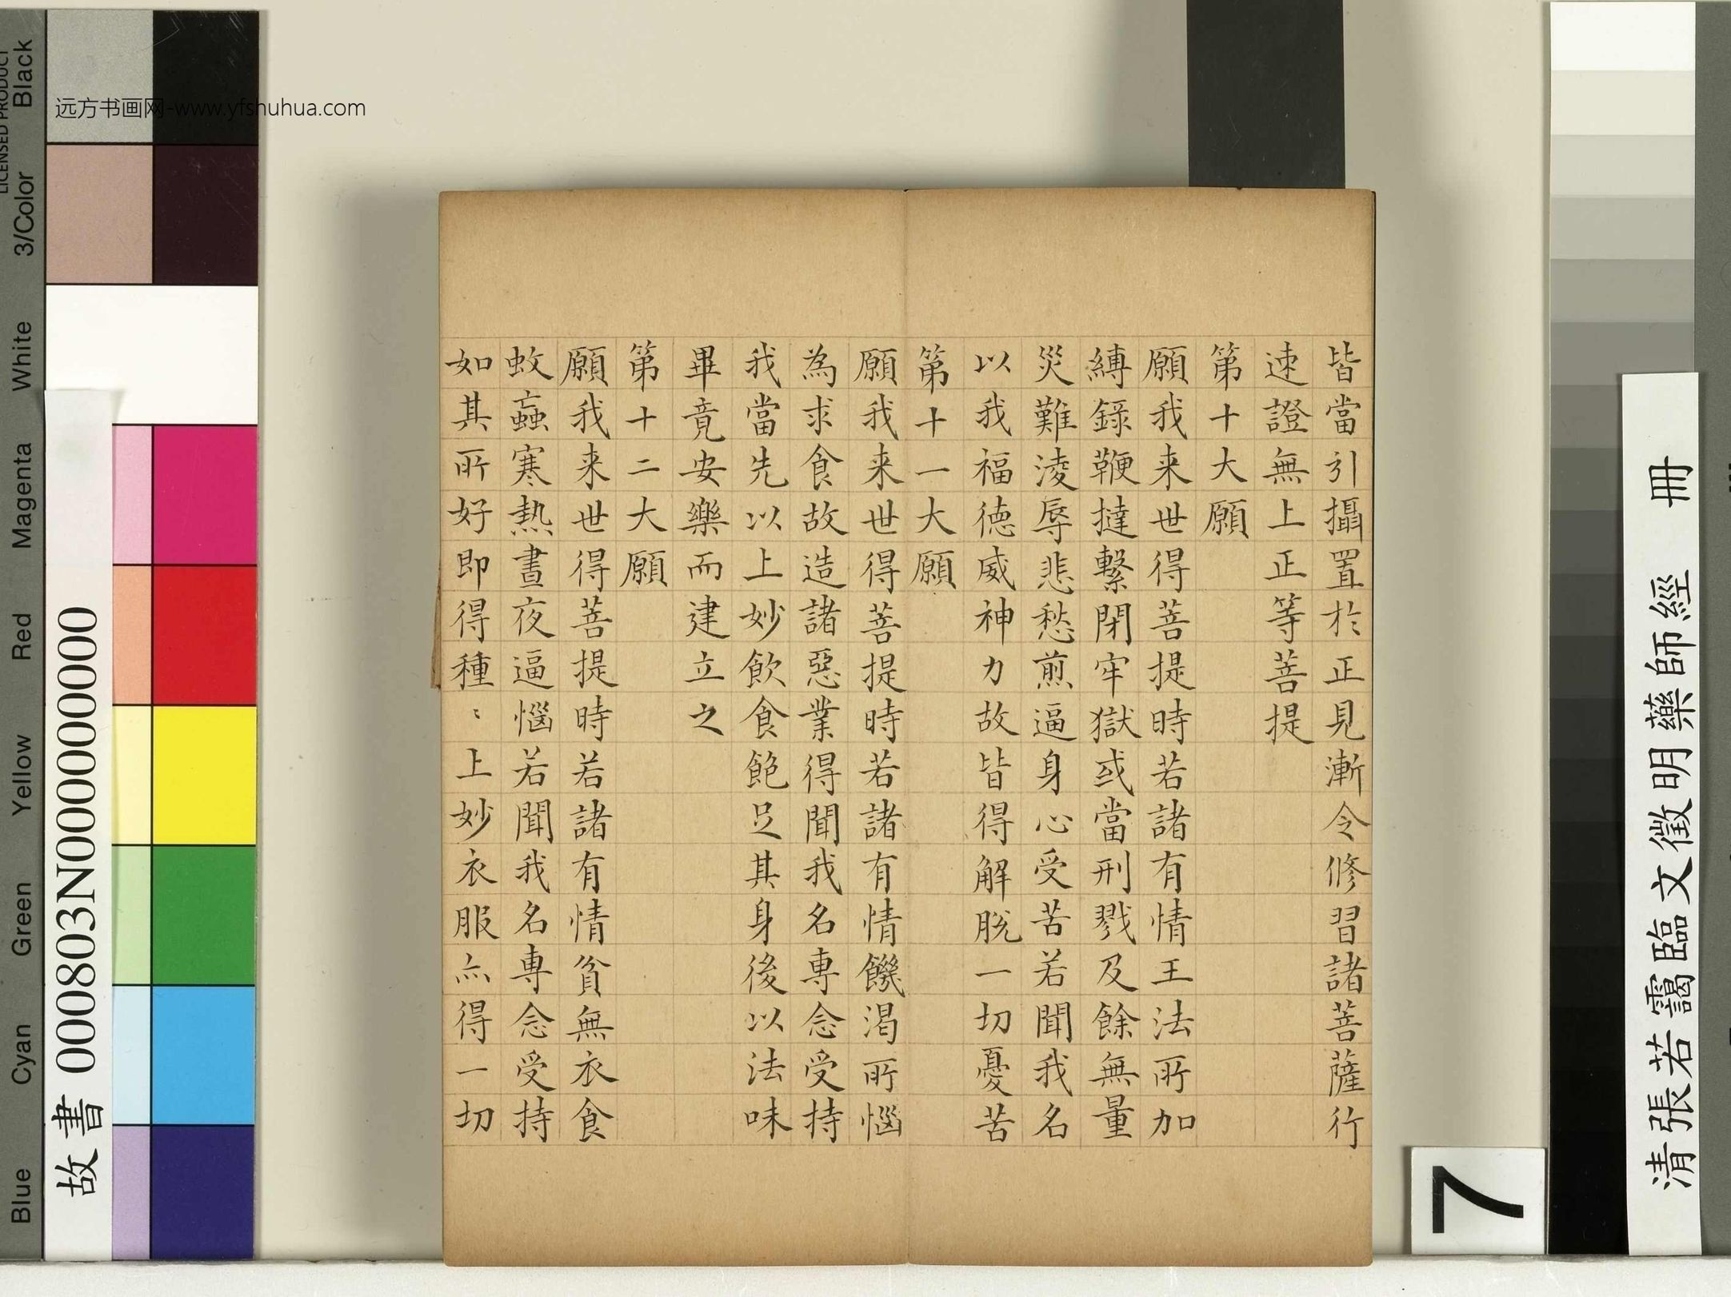 皆當引攝置於正見漸令修習諸菩薩行
速證無上正等菩提
第十大願
願我来世得菩提時若諸有情王法所加
縛錄鞭撻繫閉牢獄或當刑戮及餘無量
災難淩辱悲愁煎逼身心受苦若聞我名
以我福德威神力故皆得解脫一切憂苦
第十一大願
願我来世得菩提時若諸有情饑渴所惱
為求食故造諸惡業得聞我名專念受持
我當先以上妙飲食飽足其身後以法味
畢竟安樂而建立之
第十二大願
願我来世得菩提時若諸有情貧無衣食
蚊蝱寒熱晝夜逼惱若聞我名專念受持
如其所好即得種〻上妙衣服亦得一切
清張若靄臨文徵明藥師經 冊
7
故書 000803N000000000
远方书画网-www.yfshuhua.com
LICENSED PRODUCT
Black
3/Color
White
Magenta
Red
Yellow
Green
Cyan
Blue